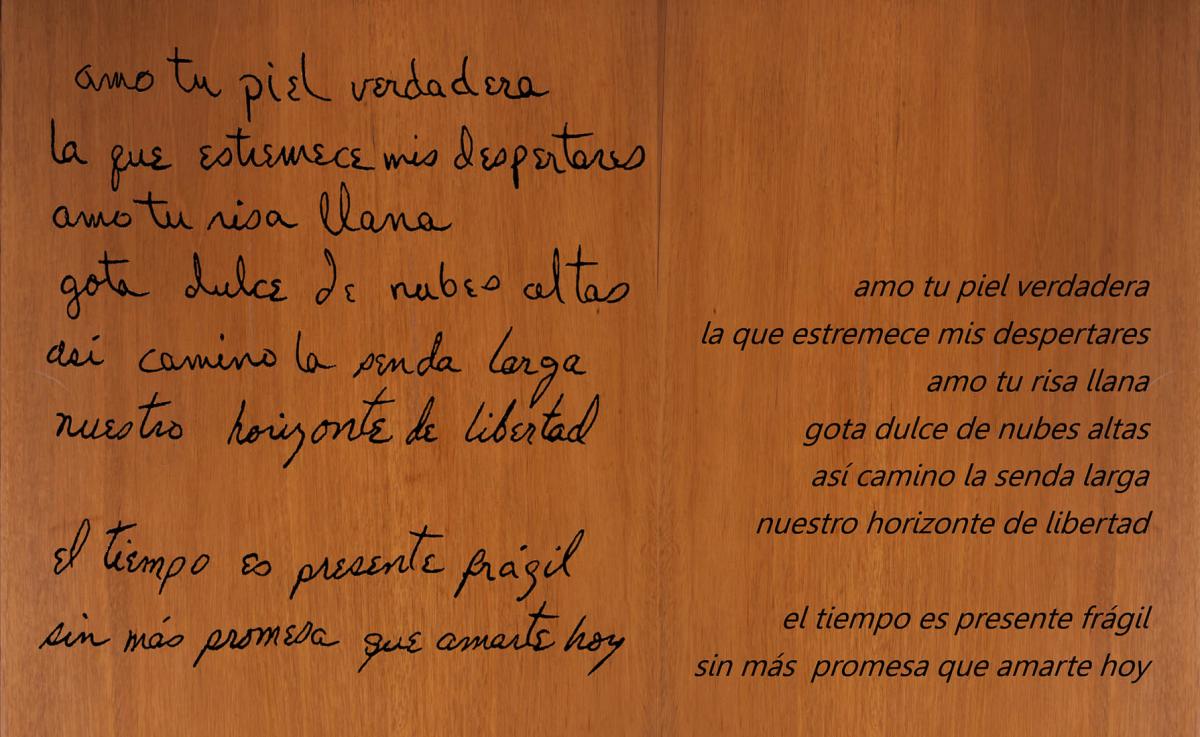 amo tu piel verdadera
la que estremece mis despertares
amo tu risa llana
gota dulce de nubes altas
así camino la senda larga
nuestro horizonte de libertad
el tiempo es presente frágil
sin más promesa que amarte hoy
amo tu piel verdadera
la que estremece mis despertares
amo tu risa llana
gota dulce de nubes altas
así camino la senda larga
nuestro horizonte de libertad
el tiempo es presente frágil
sin más  promesa que amarte hoy